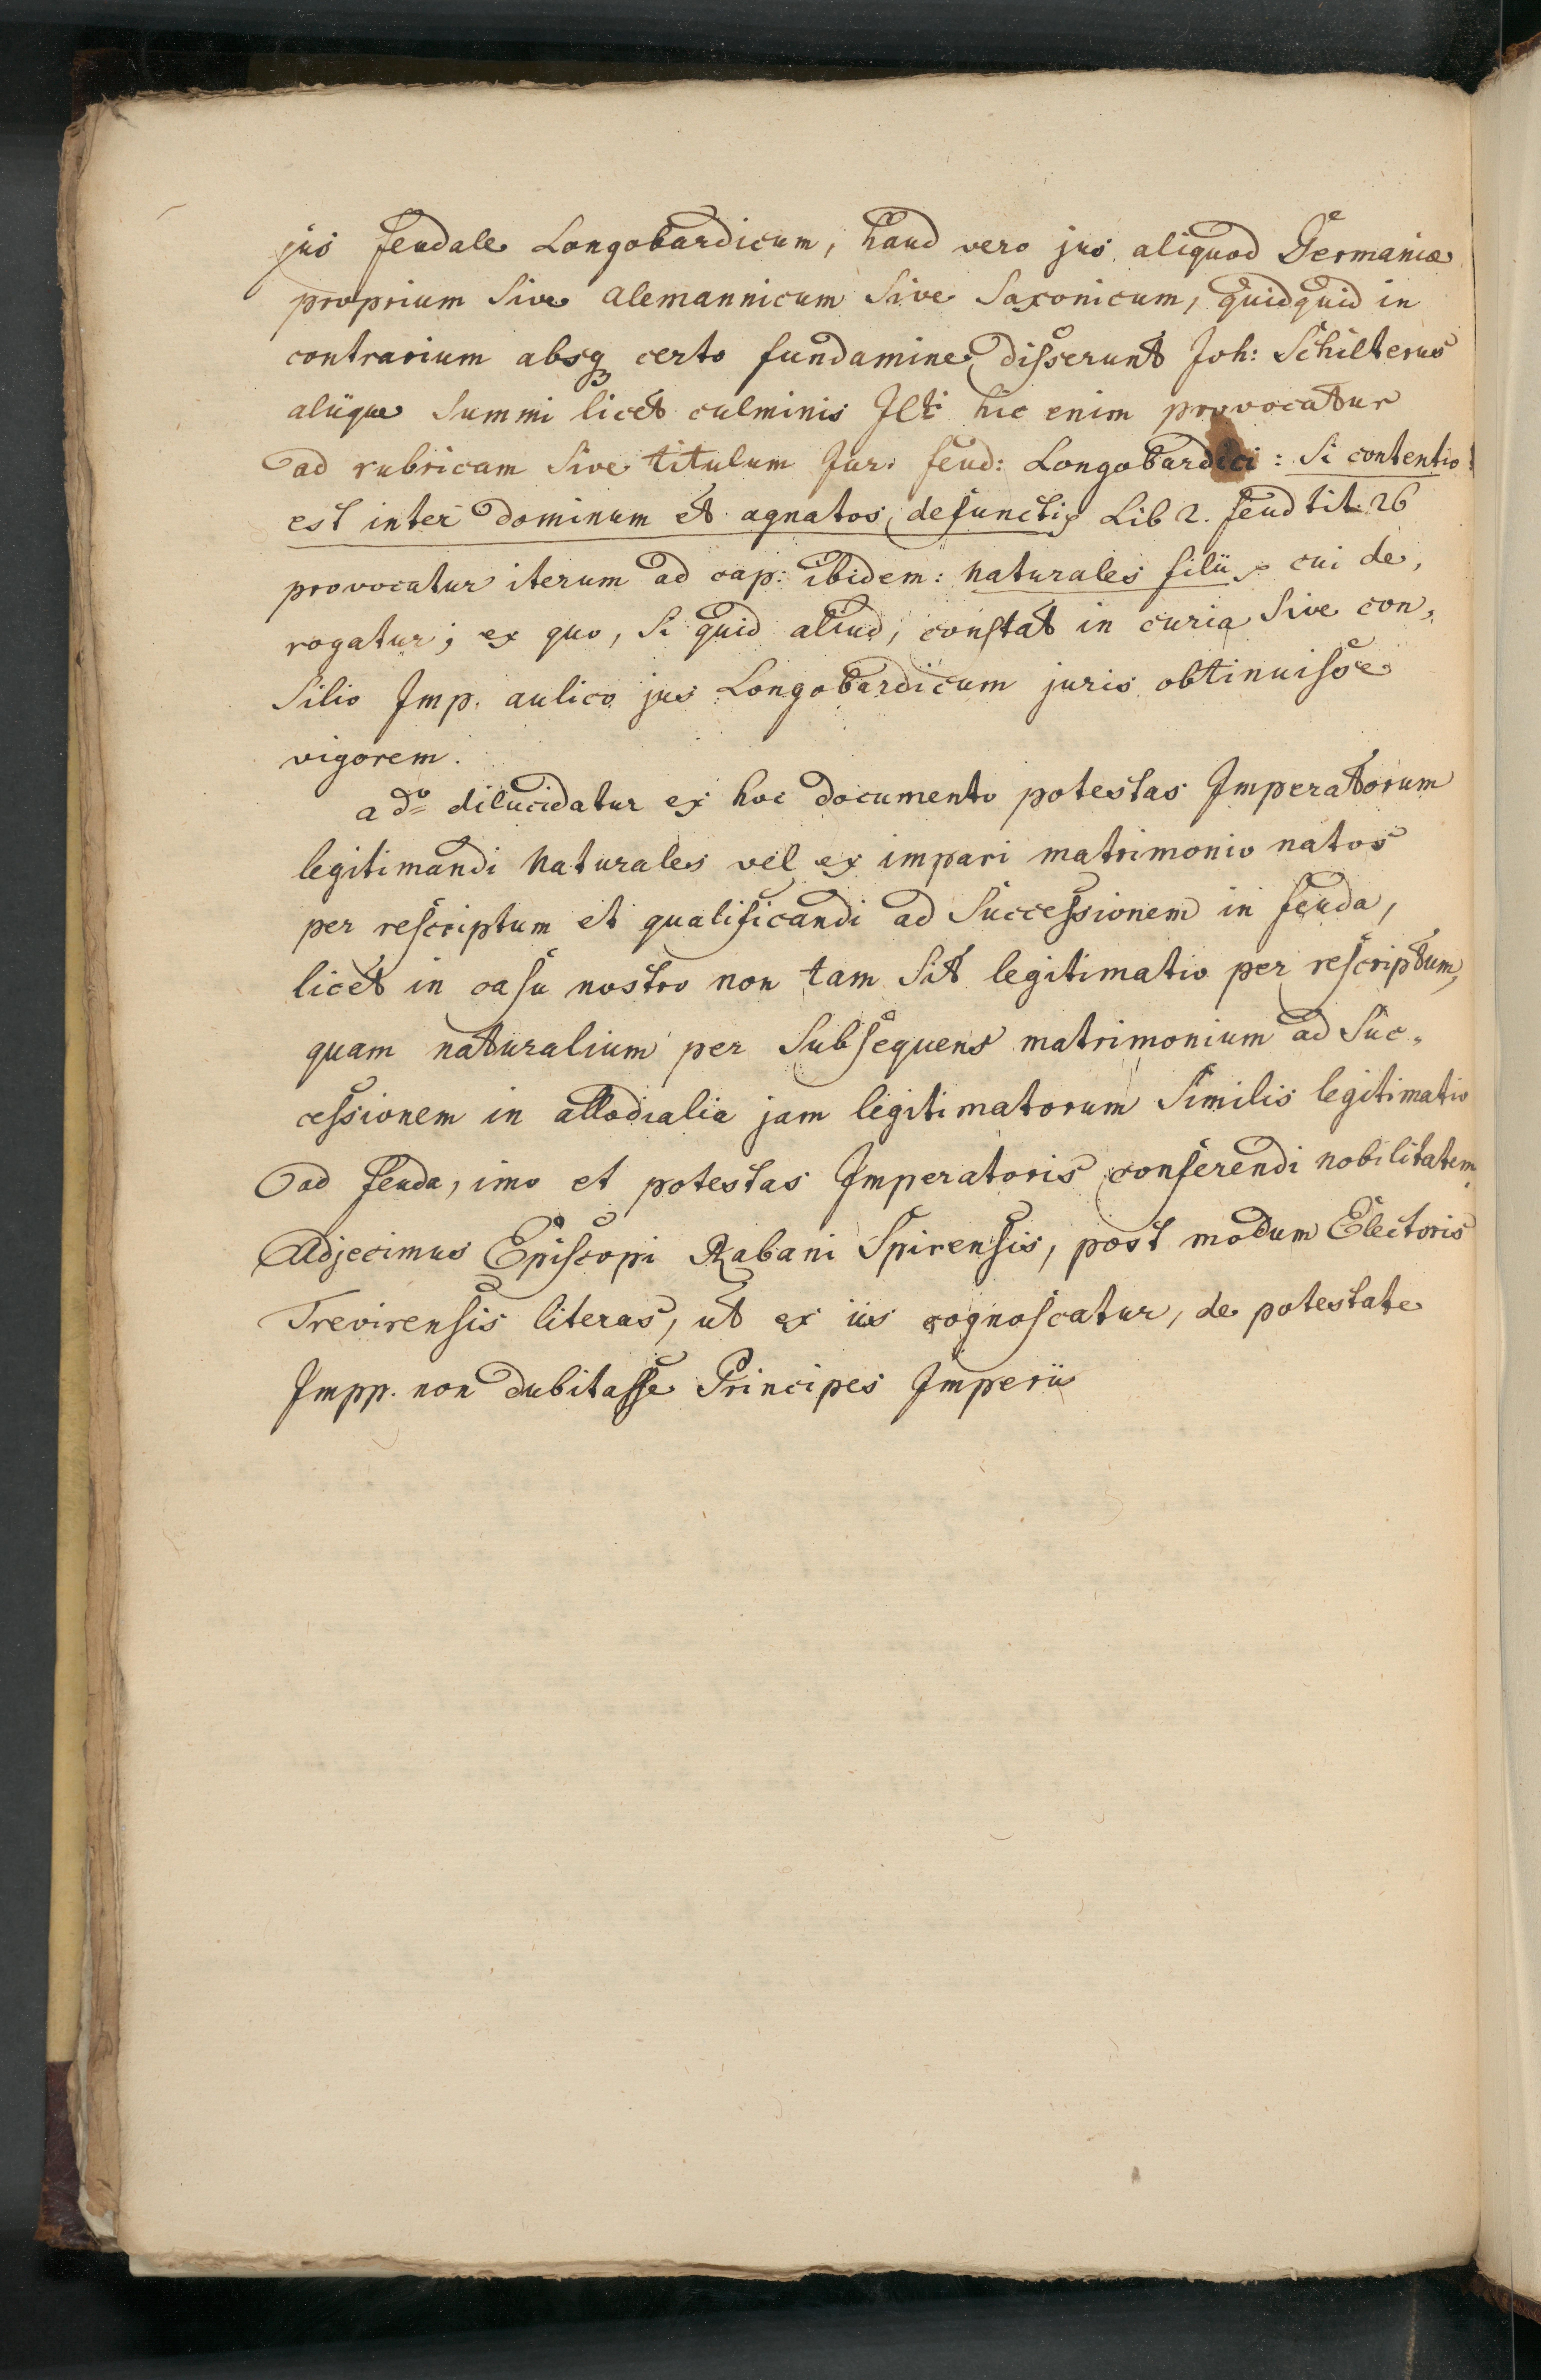 jus feudale Longobardicum, haud vero jus aliquod Germaniæ
proprium sive alemannicum sive Saxonicum, quidquid in
contrarium absq3 certo fundamine disserunt Joh: Schilterus
aliique summi licet culminis JCti hic enim provocatur
ad rubricam sive titulum Jur: feud: Longobardici : si contentio
est inter dominum et agnatos defuncti Lib 2. feud tit: 26
provocatur iterum ad cap: ibidem: naturales filii cui de,
rogatur; ex quo, si quid aliud, constat in curia sive con,
silio Imp. aulico jus Longobardicum juris obtinuisse
vigorem.
ad dilucidatur ex hoc documento potestas Imperatorum
legitimandi naturales vel ex impari matrimonio natos
per rescriptum et qualificandi ad successionem in feuda,
licet in casu nostro non tam sit legitimatio per rescriptum,
quam naturalium per subsequens matrimonium ad suc,
cessionem in allodialia jam legitimatorum similis legitimatio
ad feuda, imo et potestas Imperatoris conferendi nobilitatem.
Adjecimus Episcopi Rabani Spirensis, post modum Electoris
Trevirensis literas, ut ex iis cognoscatur, de potestate
Impp. non dubitasse Principes Imperii